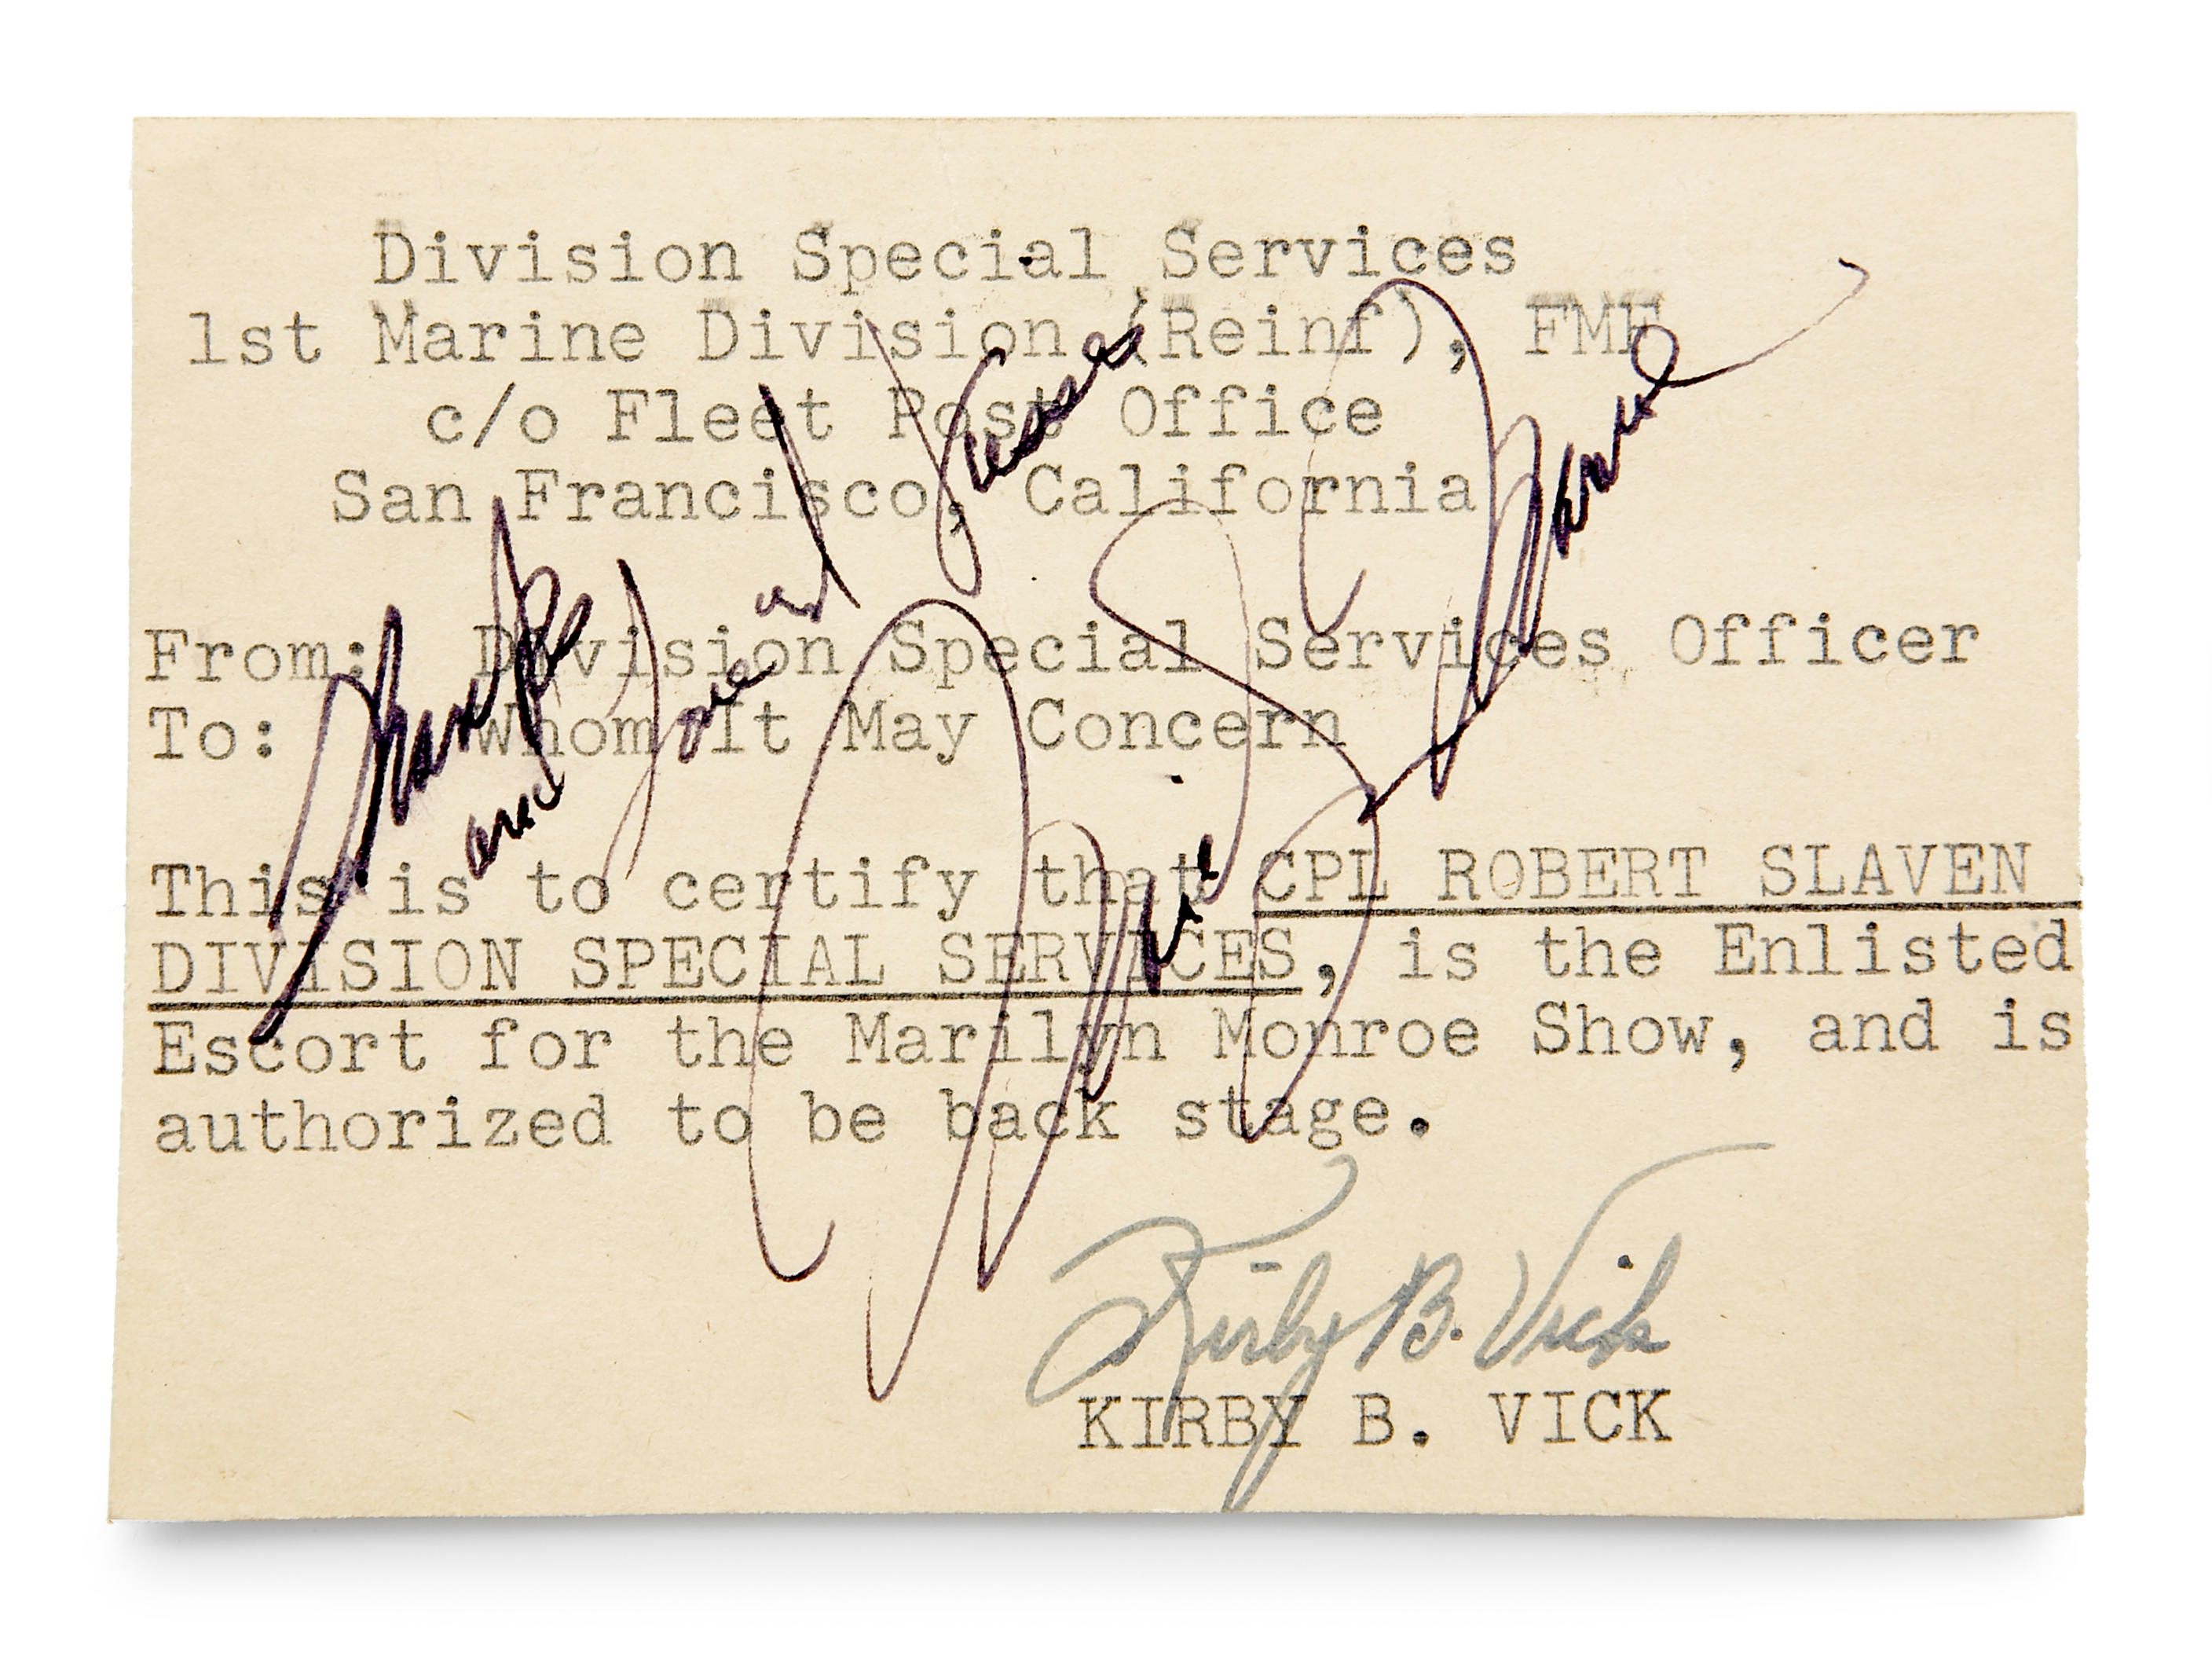 Division Special Services
1st Marine Division (Reinf), FMF
c/o Fleet Post Office
San Francisco, California
From: Division Special Services Officer
To: Whom It May Concern
This is to certify that CPL ROBERT SLAVEN
DIVISION SPECIAL SERVICES, is the Enlisted
Escort for the Marilyn Monroe Show, and is
authorized to be back stage.
Kirby B. Vick
KIRBY B. VICK
Love and Kisses